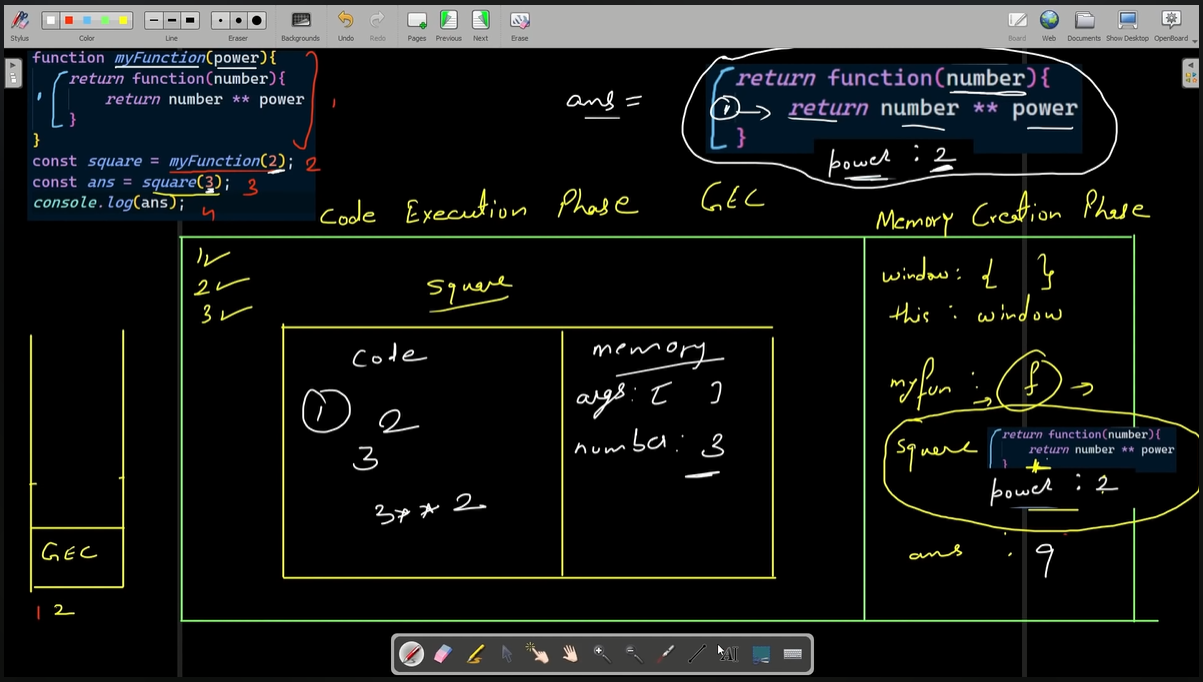 Stylus Color Line Eraser Backgrounds Undo Redo Pages Previous Next Erase Board Web Documents Show Desktop OpenBoard
function myFunction(power){
return function(number){
return number ** power
}
}
const square = myFunction(2); 2
const ans = square(3); 3
console.log(ans);
4
1
ans =
return function(number){
1 → return number ** power
}
power : 2
Code Execution Phase GEC
Memory Creation Phase
1
2
3
square
code
1 2
3
3** 2
memory
args: [ ]
number: 3
window: { }
this : window
myfun : f →
square
return function(number){
return number ** power
}
power : 2
ans : 9
GEC
1 2
AI